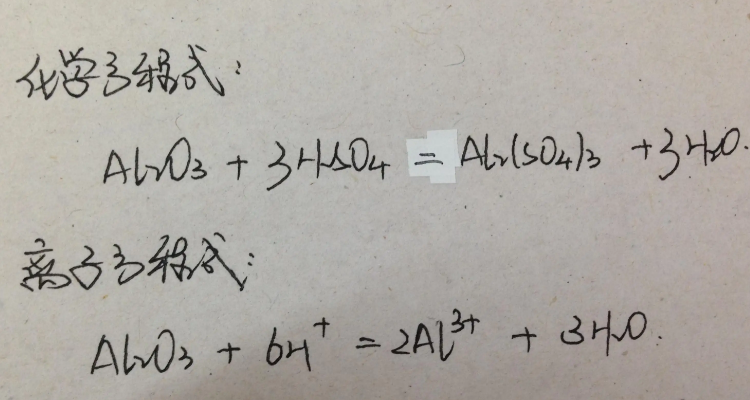 化学方程式:
Al₂O₃ + 3H₂SO₄ = Al₂(SO₄)₃ + 3H₂O.
离子方程式:
Al₂O₃ + 6H⁺ = 2Al³⁺ + 3H₂O.